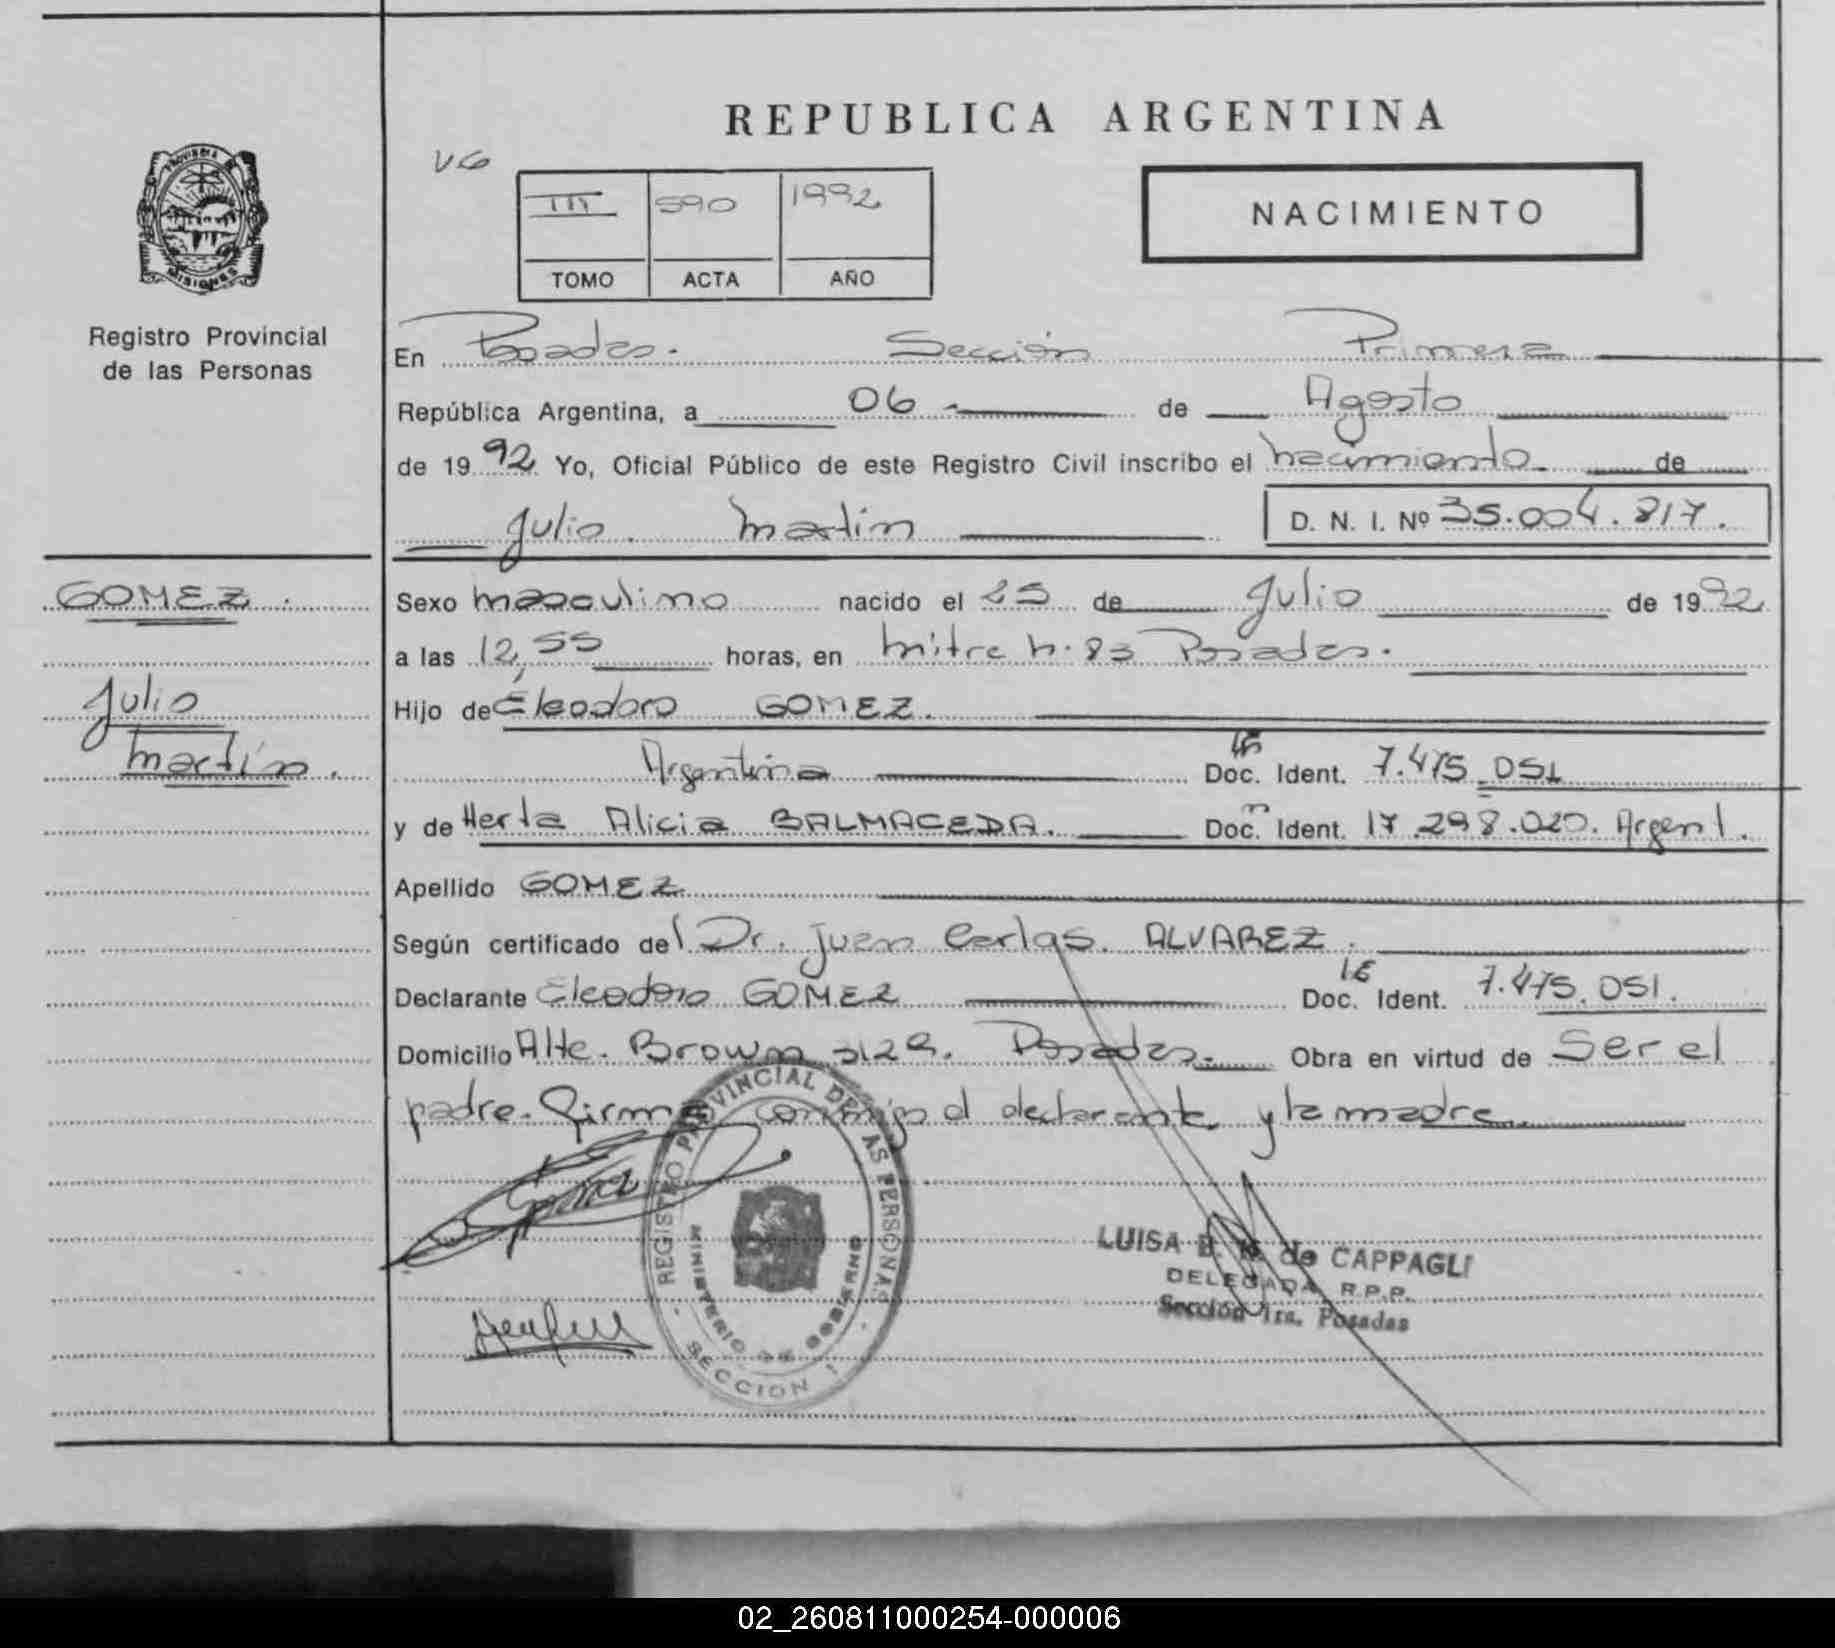 REPUBLICA ARGENTINA
PROVINCIA DE
MISIONES
Registro Provincial
de las Personas
VG
III 590 1992
TOMO ACTA AÑO
NACIMIENTO
En Posadas. Sección Primera
República Argentina, a 06 de Agosto
de 1992 Yo, Oficial Público de este Registro Civil inscribo el nacimiento de
Julio Martin D. N. I. Nº 35.004.817.
GOMEZ.
Julio
Martín.
Sexo masculino nacido el 25 de Julio de 1992
a las 12,55 horas, en Mitre n. 83 Posadas.
Hijo de Eleodoro GOMEZ.
Argentina LE Doc. Ident. 7.475.051
y de Herta Alicia BALMACEDA. Doc. Ident. 17.298.020. Argent.
Apellido GOMEZ
Según certificado del Dr. Juan Carlos. ALVAREZ.
Declarante Eleodoro GOMEZ LE Doc. Ident. 7.475.051.
Domicilio Alte. Brown 3129. Posadas. Obra en virtud de Ser el
padre. Firma conmigo el declarante y la madre.
REGISTRO PROVINCIAL DE LAS PERSONAS
MINISTERIO DE GOBIERNO
SECCION 1
LUISA de CAPPAGLI
DELEGADA R.P.P.
Sección 1ra. Posadas
02_260811000254-000006